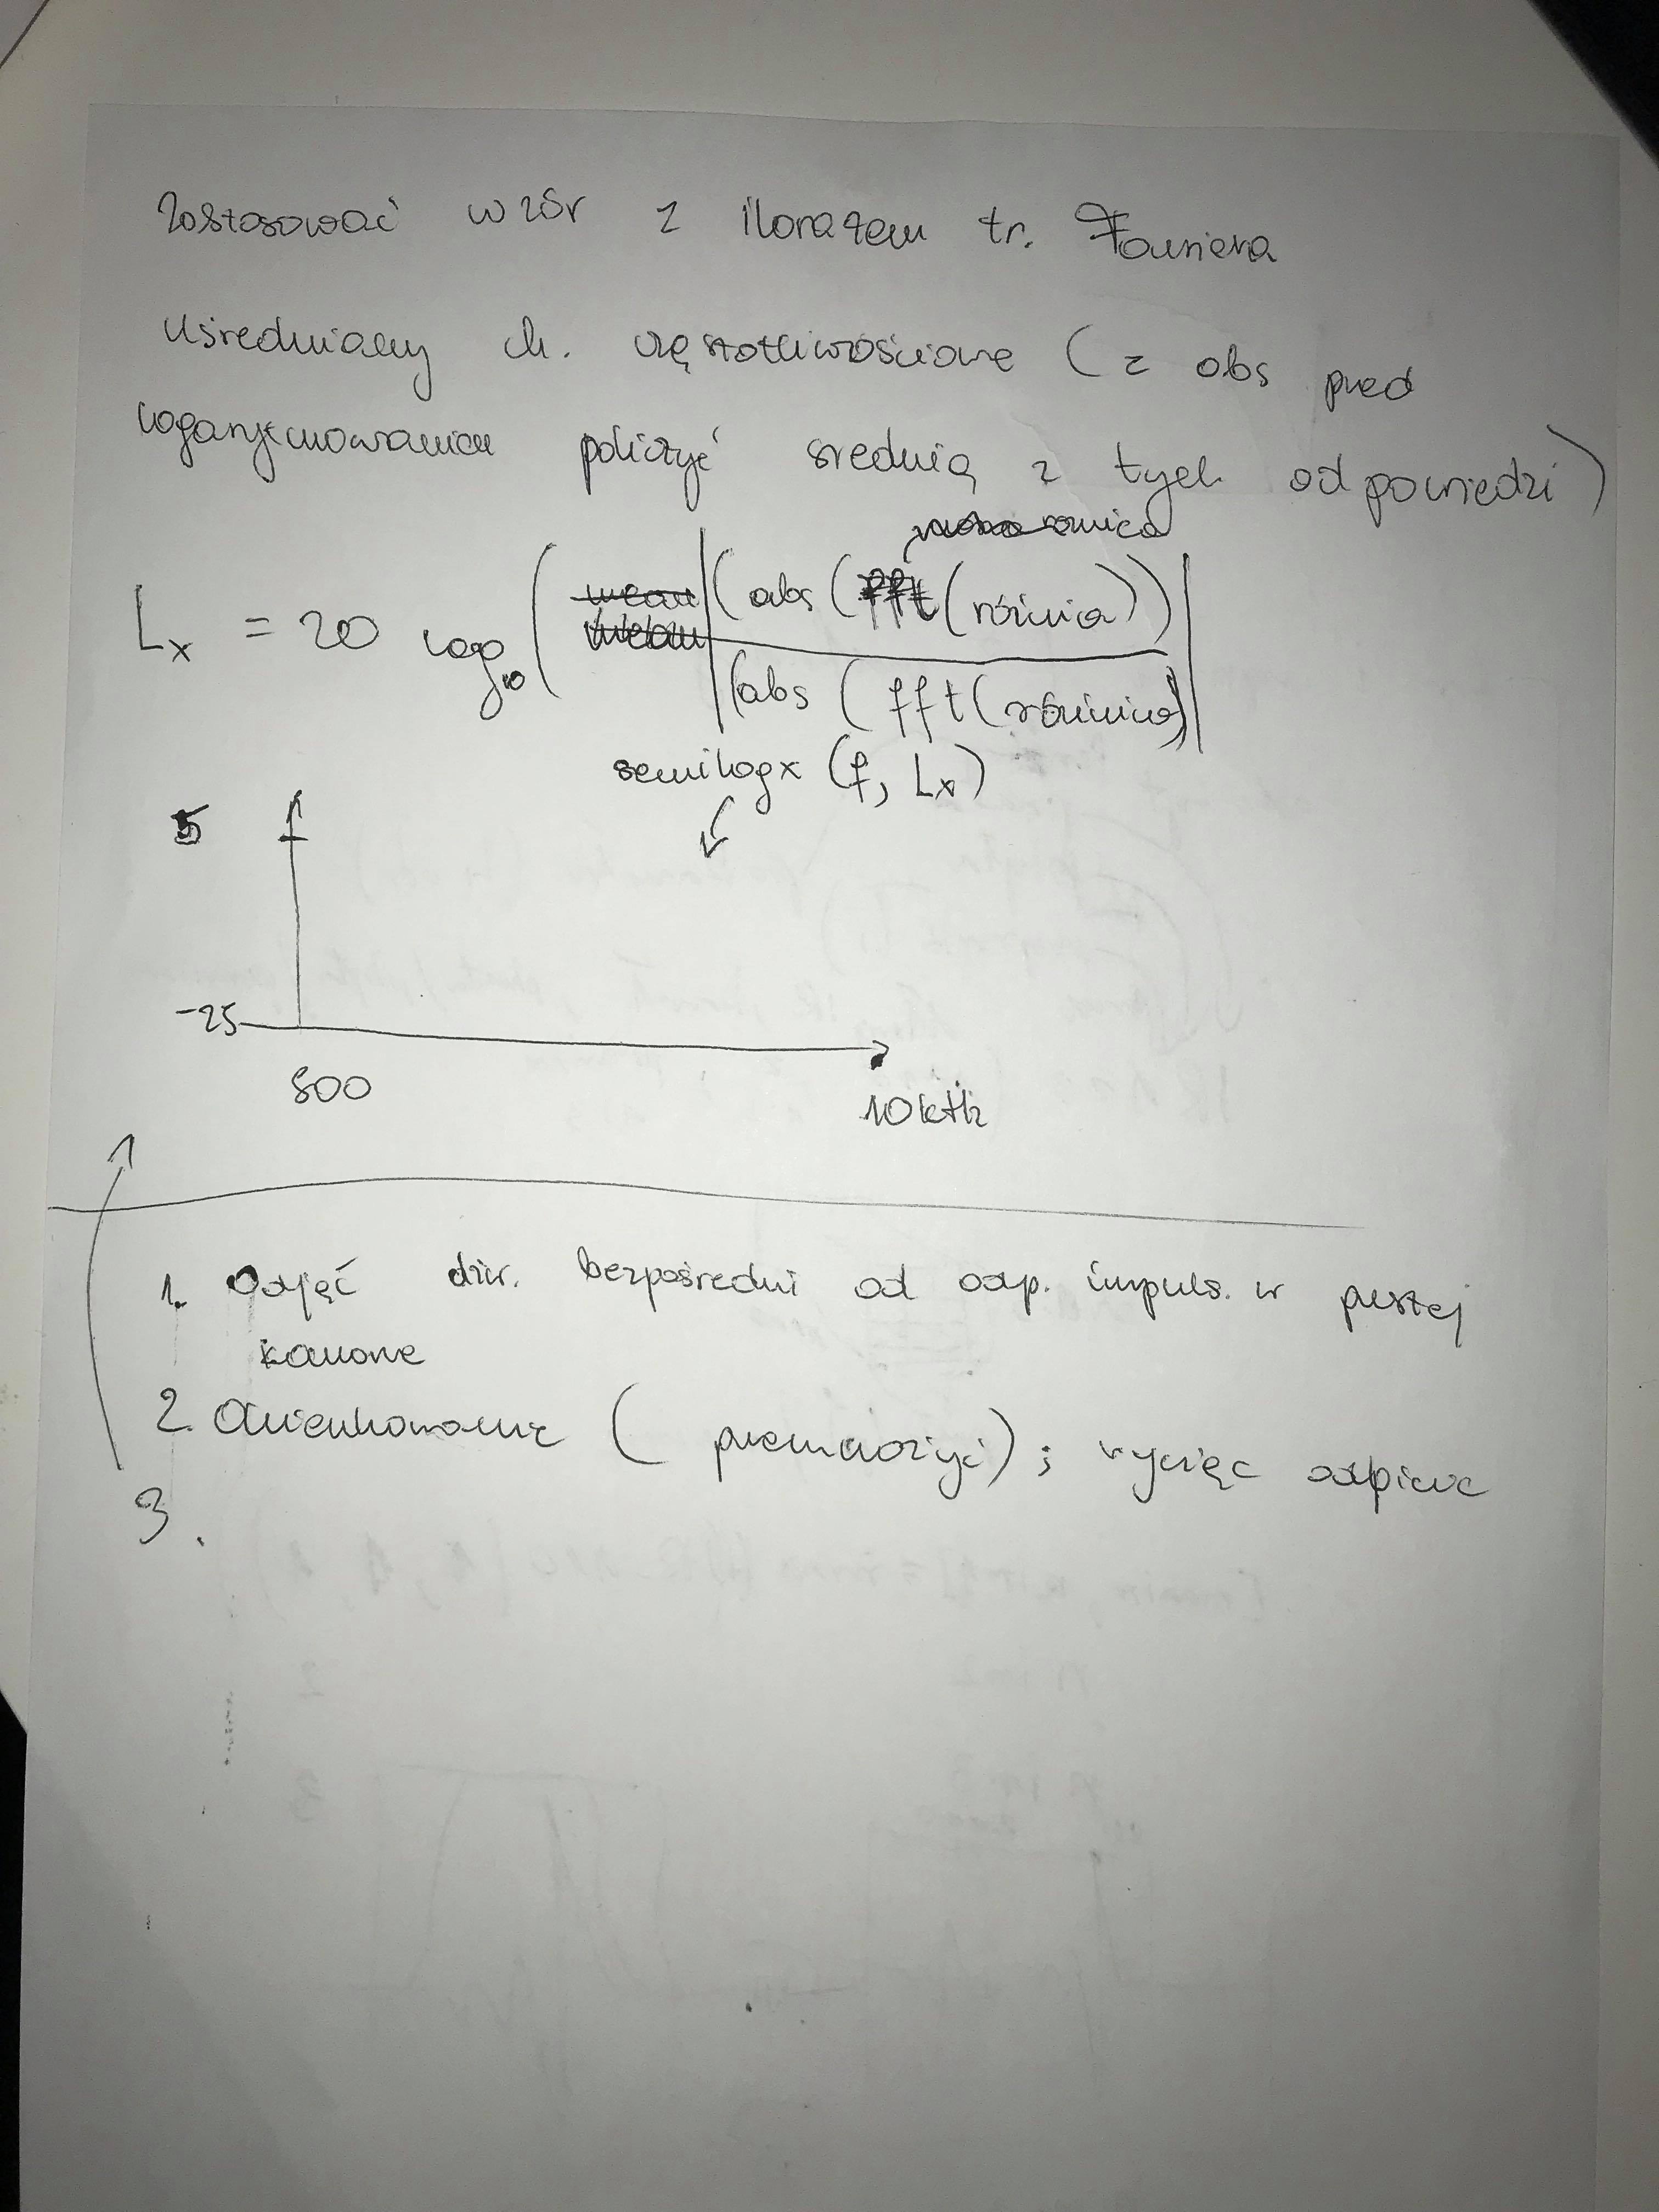 Zastosować wzór z ilorazem tr. Fouriera
uśredniamy ch. częstotliwościowe (z abs przed
logarytmowaniem policzyć średnią z tych odpowiedzi)
L_x = 20 log_10 ( | (abs (fft (różnica)) |
| (abs (fft (różnica) |
semilogx (f, L_x)
5
-25
800
10 kHz
1. Odjąć dźw. bezpośredni od odp. impuls. w pustej
komorze
2. Okienkowanie (przemnożyć); wyciąć odpiew
3.